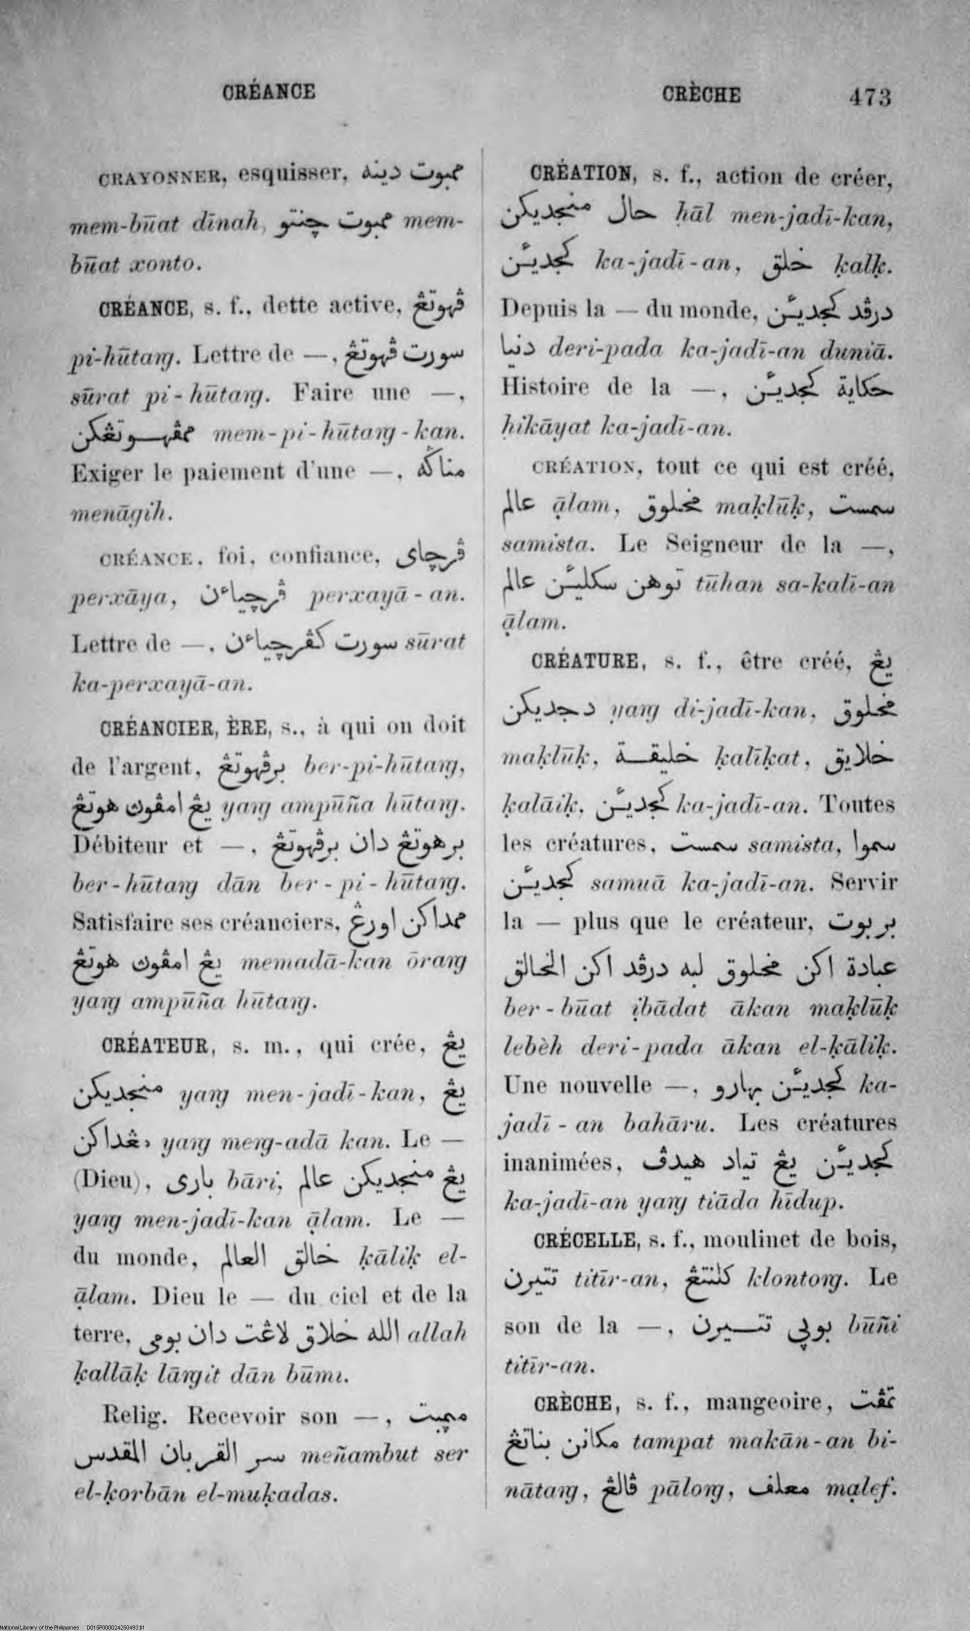 CRÉANCE
CRÈCHE 473
CRAYONNER, esquisser, ممبوت دينه
mem-būat dīnah, ممبوت چنتو mem-
būat xonto.
CRÉANCE, s. f., dette active, ڤهوتڠ
pi-hūtaŋ. Lettre de —, سورت ڤهوتڠ
sūrat pi-hūtaŋ. Faire une —,
ممڤهوتڠكن mem-pi-hūtaŋ-kan.
Exiger le paiement d'une —, مناݢه
menāgih.
CRÉANCE, foi, confiance, ڤرچاي
perxāya, ڤرچياءن perxayā-an.
Lettre de —, سورت كڤرچياءن sūrat
ka-perxayā-an.
CRÉANCIER, ÈRE, s., à qui on doit
de l'argent, برڤهوتڠ ber-pi-hūtaŋ,
يڠ امڤوڽ هوتڠ yaŋ ampūña hūtaŋ.
Débiteur et —, برهوتڠ دان برڤهوتڠ
ber-hūtaŋ dān ber-pi-hūtaŋ.
Satisfaire ses créanciers, ممداكن اورڠ
يڠ امڤوڽ هوتڠ memadā-kan ōraŋ
yaŋ ampūña hūtaŋ.
CRÉATEUR, s. m., qui crée, يڠ
منجديكن yaŋ men-jadī-kan, يڠ
مڠداكن yaŋ meŋ-adā kan. Le —
(Dieu), باري bāri, يڠ منجديكن عالم
yaŋ men-jadī-kan ạ̄lam. Le —
du monde, خالق العالم ḳāliḳ el-
ạ̄lam. Dieu le — du ciel et de la
terre, الله خلاق لاڠت دان بومي allah
ḳallāḳ lāŋit dān būmi.
Relig. Recevoir son —, مڽمبت
سر القربان المقدس meñambut ser
el-ḳorbān el-muḳadas.
CRÉATION, s. f., action de créer,
حال منجديكن ḥāl men-jadī-kan,
كجديئن ka-jadī-an, خلق ḳalḳ.
Depuis la — du monde, درڤد كجديئن
دنيا deri-pada ka-jadī-an duniā.
Histoire de la —, حكاية كجديئن
ḥikāyat ka-jadī-an.
CRÉATION, tout ce qui est créé,
عالم ạ̄lam, مخلوق maḳlūḳ, سمست
samista. Le Seigneur de la —,
توهن سكليئن عالم tūhan sa-kalī-an
ạ̄lam.
CRÉATURE, s. f., être créé, يڠ
دجديكن yaŋ di-jadī-kan, مخلوق
maḳlūḳ, خليقة ḳalīḳat, خلايق
ḳalāiḳ, كجديئن ka-jadī-an. Toutes
les créatures, سمست samista, سموا
كجديئن samuā ka-jadī-an. Servir
la — plus que le créateur, بربوت
عبادة اكن مخلوق لبه درڤد اكن الخالق
ber-būat ịbādat ākan maḳlūḳ
lebèh deri-pada ākan el-ḳāliḳ.
Une nouvelle —, كجديئن بهارو ka-
jadī-an bahāru. Les créatures
inanimées, كجديئن يڠ تياد هيدڤ
ka-jadī-an yaŋ tiāda hīdup.
CRÉCELLE, s. f., moulinet de bois,
تتيرن titīr-an, كلنتڠ klontoŋ. Le
son de la —, بوڽي تتيرن būñi
titīr-an.
CRÈCHE, s. f., mangeoire, تمڤت
مكانن بناتڠ tampat makān-an bi-
nātaŋ, ڤالڠ pāloŋ, معلف mạlef.
National Library of the Philippines